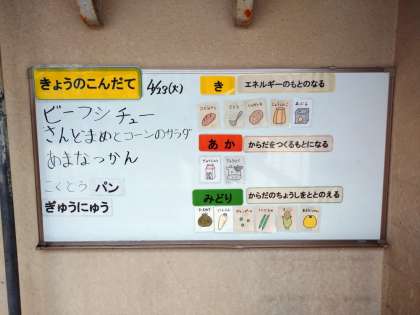 きょうのこんだて
4/23(火)
ビーフシチュー
さんどまめとコーンのサラダ
あまなつかん
こくとう パン
ぎゅうにゅう
き エネルギーのもとのなる
あか からだをつくるもとになる
みどり からだのちょうしをととのえる